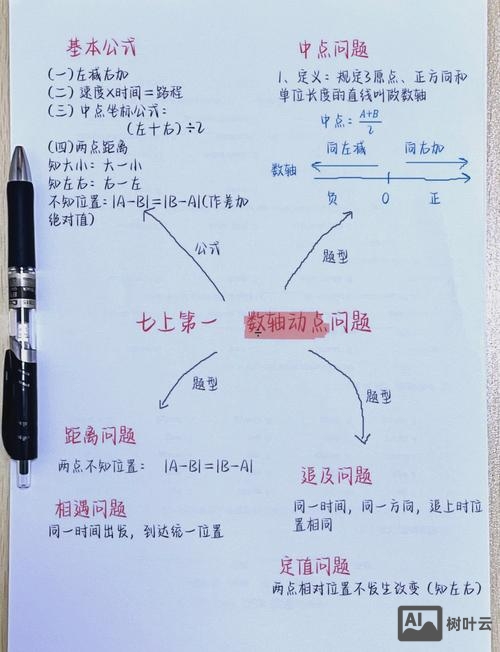 基本公式
(一)左减右加
(二)速度×时间=路程
(三)中点坐标公式:
(左+右)÷2
(四)两点距离
知大小:大-小
知左右:右-左
不知位置:|A-B|=|B-A|(作差加
绝对值)
中点问题
1、定义:规定3原点、正方向和
单位长度的直线叫做数轴
中点:A+B/2
向左减
向右加
数轴
负
0
正
公式
题型
七上第一 数轴动点问题
÷
题型
题型
距离问题
两点不知位置: |A-B|=|B-A|
相遇问题
同一时间出发,到达统一位置
追及问题
同一时间,同一方向,追上时位
置相同
定值问题
两点相对位置不发生改变(知左右)
AI
树叶云